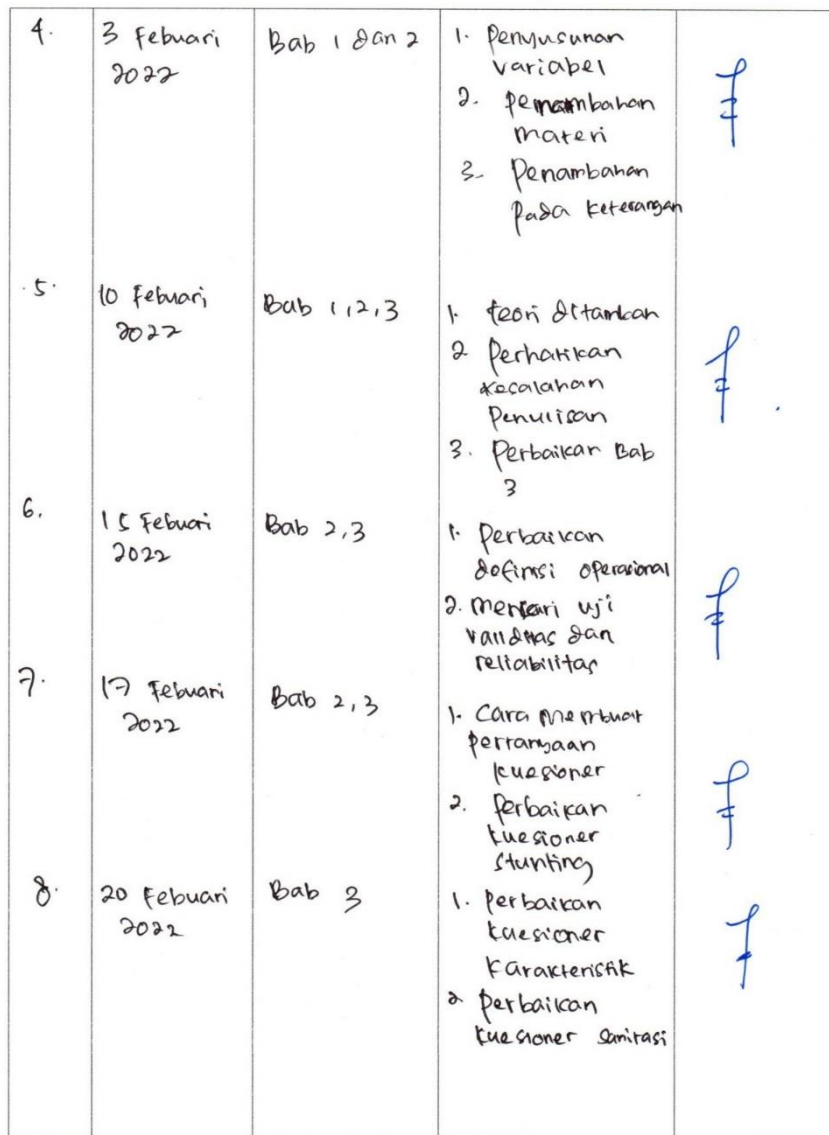 4.
3 Febuari
2022
Bab 1 dan 2
1. Penyusunan
variabel
2. Penambahan
materi
3. Penambahan
pada keterangan
5.
10 Febuari
2022
Bab 1,2,3
1. teori ditambahan
2 Perhatikan
kesalahan
Penulisan
3. Perbaikan Bab
3
6.
15 Febuari
2022
Bab 2,3
1. Perbaikan
definisi operasional
2. Mencari uji
validitas dan
reliabilitas
7.
17 Febuari
2022
Bab 2,3
1. Cara Membuat
pertanyaan
kuesioner
2. Perbaikan
kuesioner
stunting
8.
20 Febuari
2022
Bab 3
1. Perbaikan
kuesioner
karakteristik
2 Perbaikan
kuesioner sanitasi